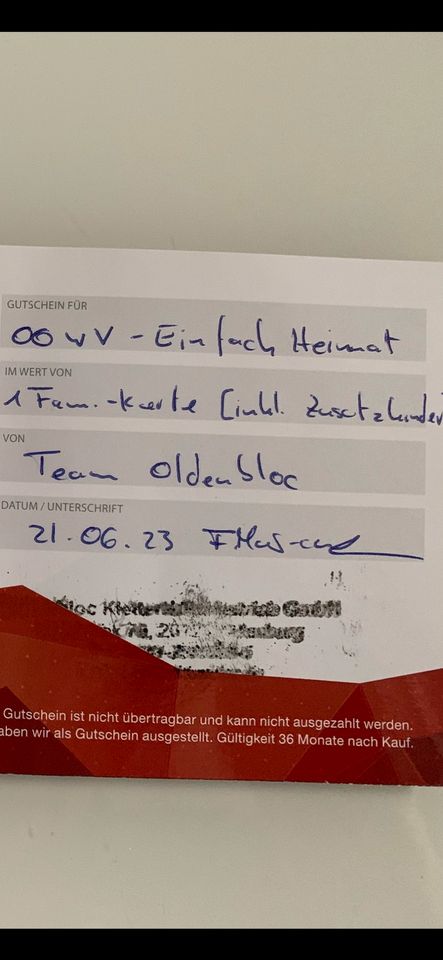 GUTSCHEIN FÜR
OOWV - Einfach Heimat
IM WERT VON
1 Fam.-Karte (inkl. Zusatzkinder
VON
Team Oldenbloc
DATUM / UNTERSCHRIFT
21.06.23
GmbH
Gutschein ist nicht übertragbar und kann nicht ausgezahlt werden.
aben wir als Gutschein ausgestellt. Gültigkeit 36 Monate nach Kauf.